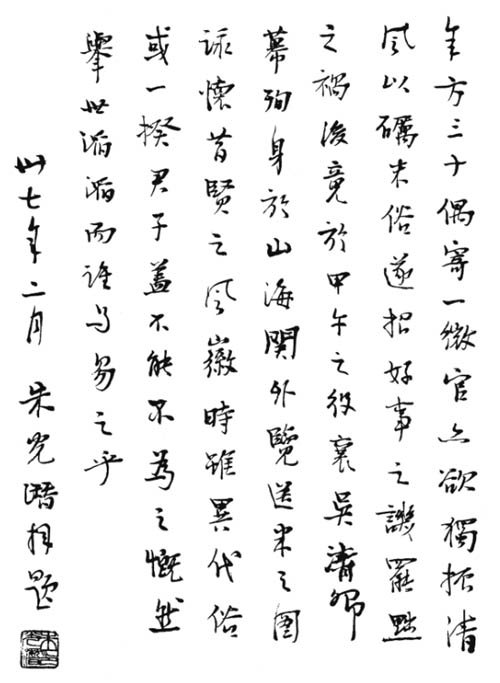 年方三十偶寄一微官亦欲獨振清
風以礪末俗遂招好事之譏罷黜
之禍後竟於甲午之役襄吳清卿
幕殉身於山海関外覽送米之圖
詠懷昔賢之風徽時雖異代俗
或一揆君子蓋不能不為之慨然
舉世滔滔而誰与易之乎
卅七年二月 朱光潛拜題